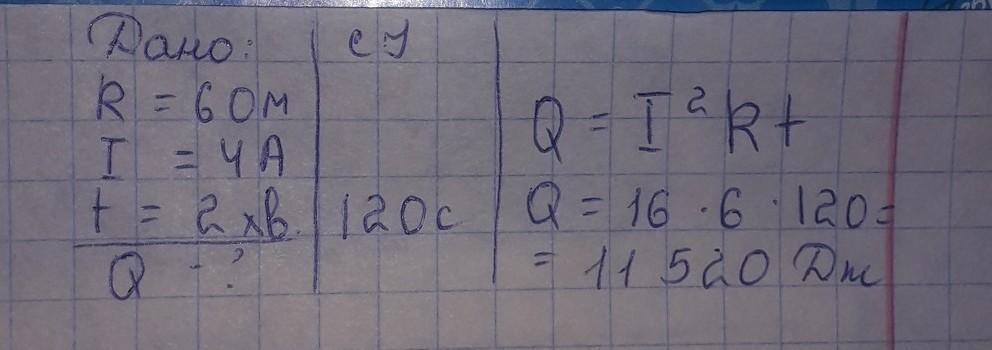 Дано:
R = 6 Ом
I = 4А
t = 2 хв.
Q - ?
СІ
120с
Q = I² R t
Q = 16 · 6 · 120 =
= 11 520 Дж